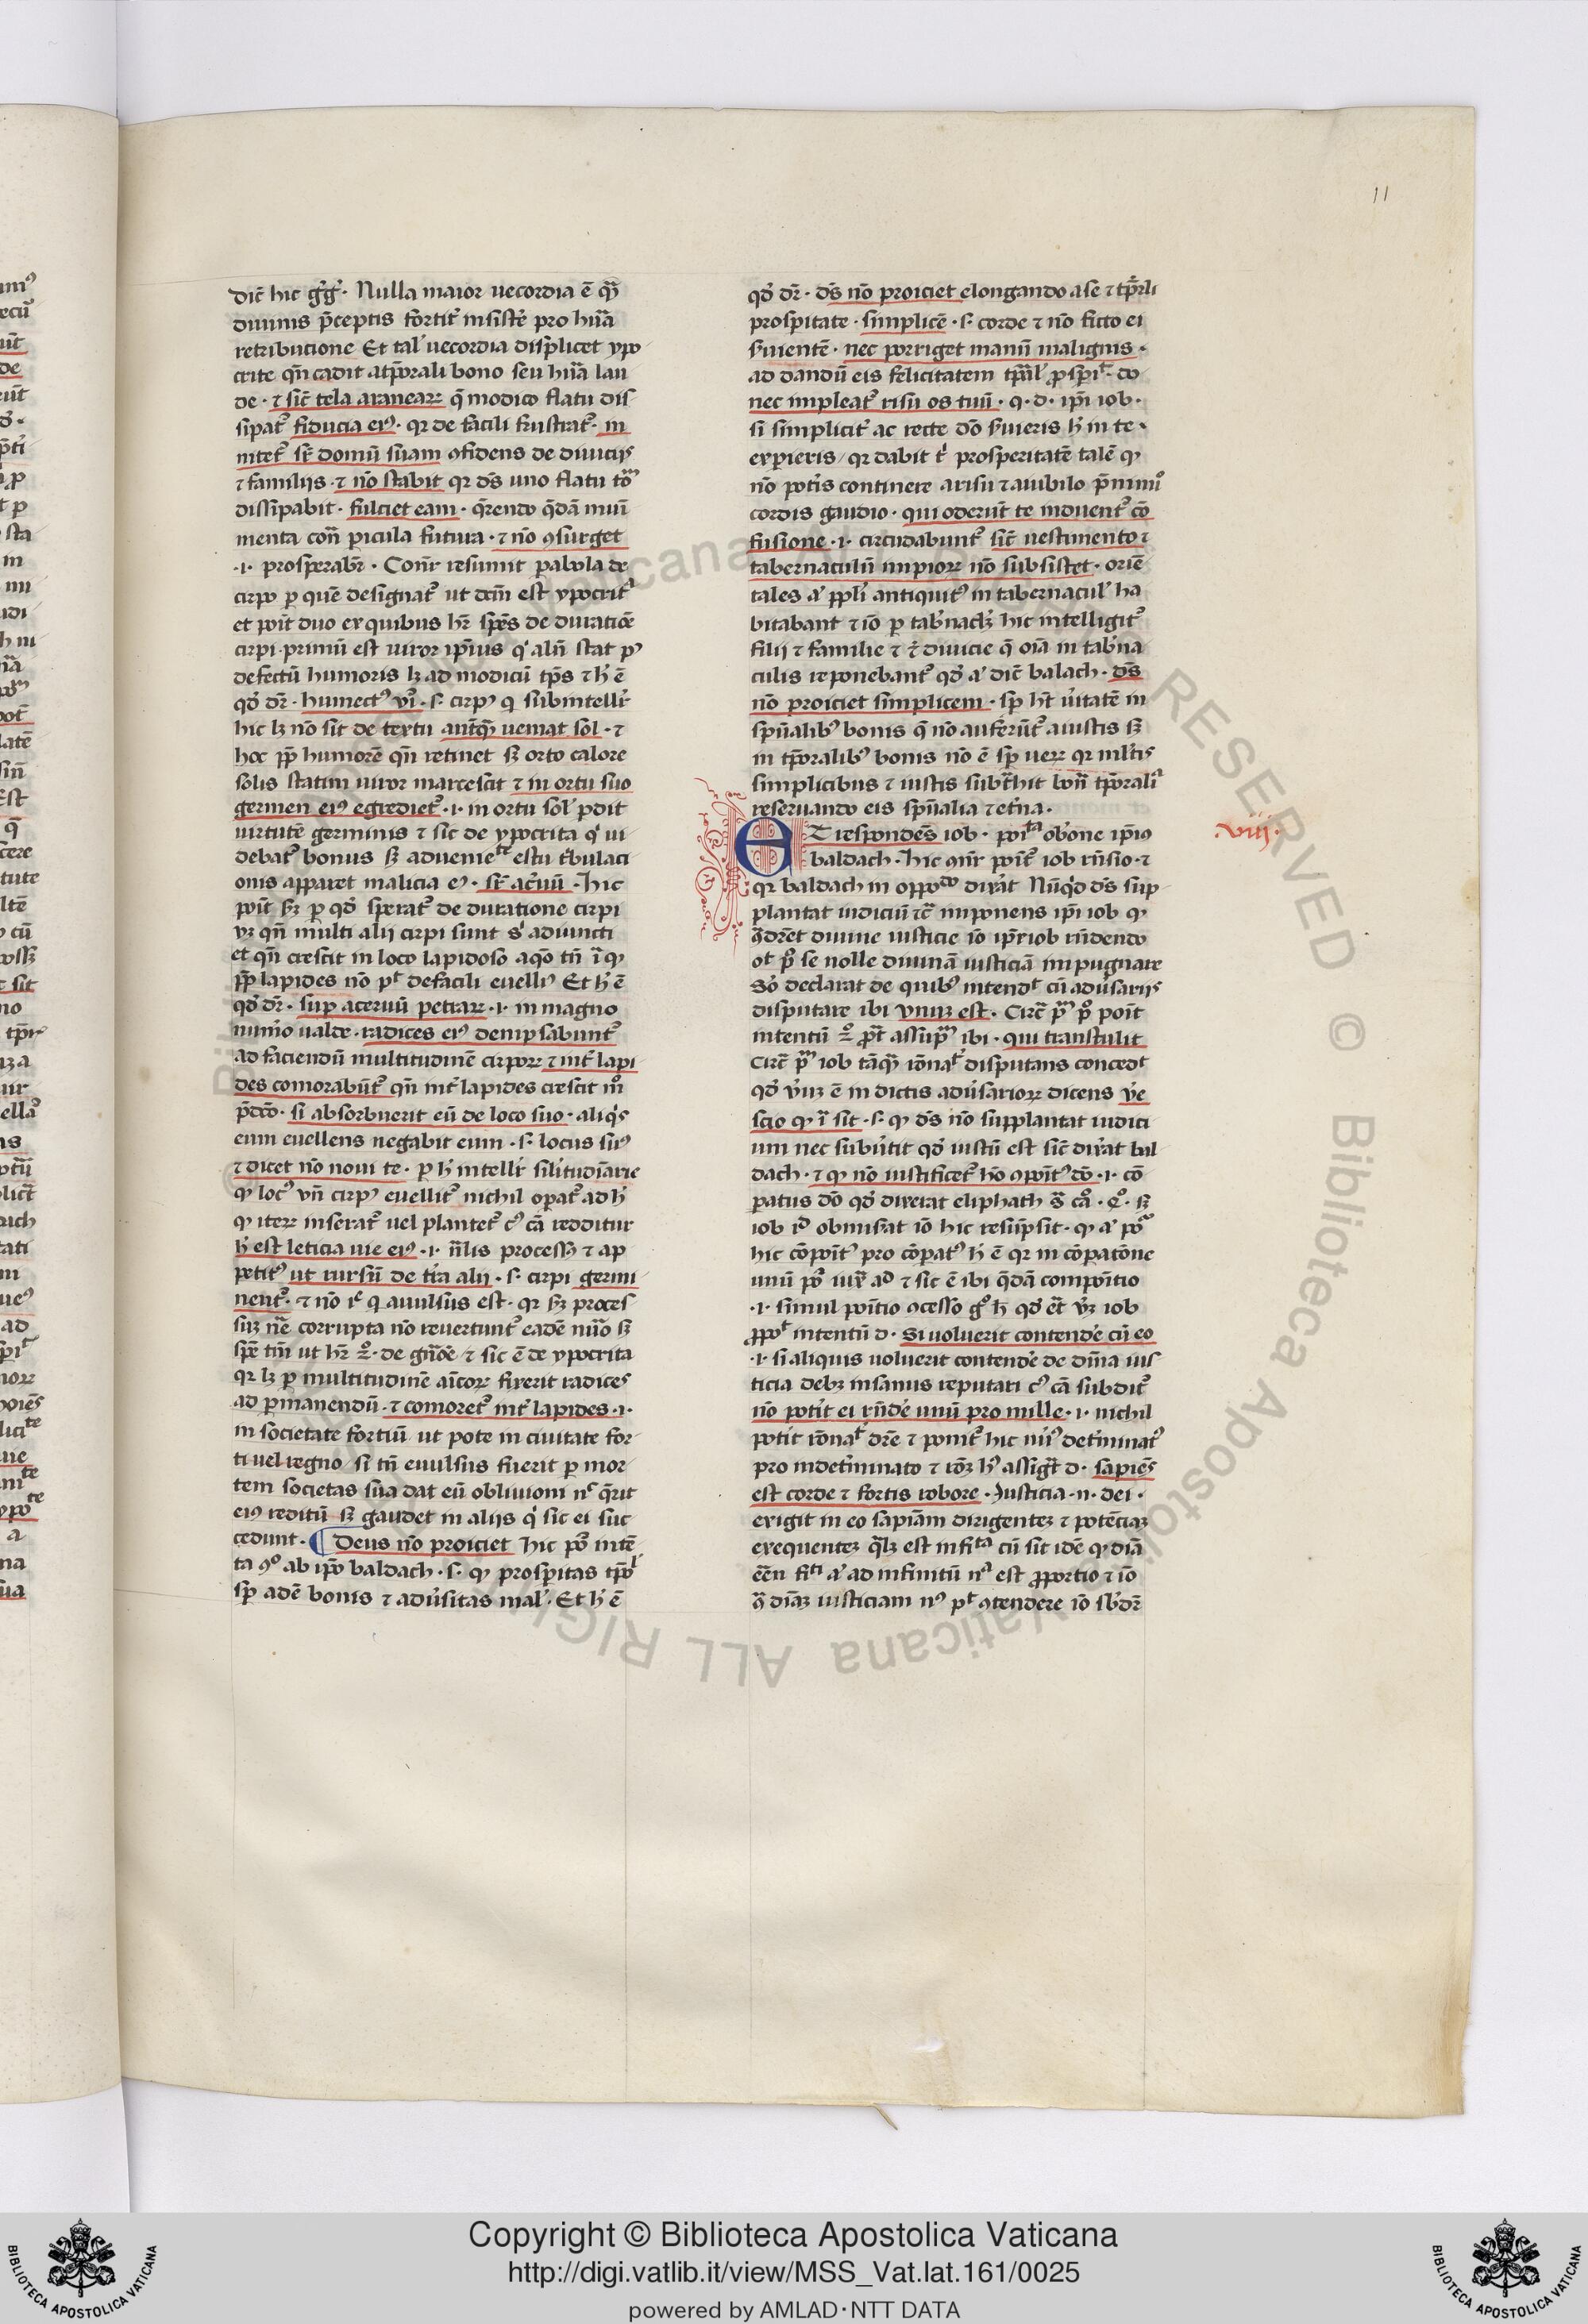 11
dic̄ hic gͥgͥ. Nulla maior uecordia ē qᷓ
diuinis p̄ceptis fortit᷑ insiste᷑ pro hūa
retributione Et tal᷑ uecordia displicet ypo
crite qn̄ cadit a tp̄orali bono seu hūa lau
de · ⁊ sic̄ tela aranearꝝ q̄ modico flatu dis
sipat᷑ fiducia eiꝰ · qꝛ de facili frustrat᷑ · in
nitet᷑ sr̄ domū suam ꝯfidens de diuicijs
⁊ familijs · ⁊ nō stabit qꝛ dn̄s uno flatu
dissipabit · fulciet eam · q̄rendo q̄dā muni
menta con̄ picula futura · ⁊ nō ꝯsurget
.i. prosperabr̄ · Con̄r resumit pabola de
cirpo p quē designat᷑ ut dc̄m est ypocrita
et poīt duo ex quibus hr̄ spēs de duratiōe
cirpi · primū est uiror ipīus qͥ aln̄ stat pꝰ
defectū humoris lꝫ ad modicū tp̄s ⁊ h᷑ ē
qd̓ dr̄ · humectꝰ · s. cirpꝰ q subintellr᷑
hic lꝫ nō sit de textu an̄tqᷓ ueniat sol · ⁊
hoc pp̄ humorē qn̄ retinet sꝫ orto calore
solis statim uiror marcescit ⁊ in ortu suo
germen eiꝰ egrediet᷑ .i. in ortu sol᷑ pdit
uirtutē germinis ⁊ sic de ypocrita qͥ ui
debat᷑ bonus sꝫ aduenieͭͤ estu tͥbulaci
onis apparet malicia eꝰ · sr̄ ac᷑uū · Hic
poīt sꝫ p qd̓ sperat᷑ de duratione cirpi
vꝫ qn̄ multi alij cirpi sunt sͥ adiuncti
et qn̄ crescit in loco lapidoso a qͦ tn̄
pp̄ lapides nō pͭ defacili euelli Et h᷑ ē
qd̓ dr̄ · sup aceruū petrarꝝ .i. in magno
num̄o ualde · radices eiꝰ dempsabunt᷑
ad faciendū multitudinē cirporꝝ ⁊ int᷑ lapi
des comorabūt᷑ qn̄ int᷑ lapides crescit mͦ
p̄dc̄o · si absorbuerit eū de loco suo · aliqͥs
eum euellens negabit eum · s. locus suꝰ
⁊ dicet nō noui te · p h᷑ intellr᷑ silitudīarie
ꝙ locꝰ vn̄ cirpꝰ euellit᷑ nichil opat᷑ ad h᷑
ꝙ iterꝝ inserat᷑ uel plantet᷑ cꝰ cā redditur
h᷑ est leticia uie eiꝰ .i. n̄lis processꝰ ⁊ ap
petitꝰ ut rursū de tr̄a alij · s. cirpi germi
nent᷑ · ⁊ nō q auulsus est · qꝛ sꝫ proces
suꝫ nē corrupta nō reuertunt᷑ eadē nūo sꝫ
spē tm̄ ut hr̄ 2ͦ · de gn̄ōe ⁊ sic ē de ypocrita
qꝛ lꝫ p multitudinē aīcorꝝ fixerit radices
ad pmanendū · ⁊ comoret᷑ int᷑ lapides .i.
in societate fortiū ut pote in ciuitate for
ti uel regno / si tn̄ euulsus fuerit p mor
tem societas sua dat eū obliuioni nͨ q̄rit
eiꝰ reditū sꝫ gaudet in alijs qͥ sic ei suc
cedunt · ¶ Deus nō proiciet hic pō intē
ta ꝯͦ ab ipō baldach · s. ꝙ prosperitas tp̄ol᷑
sp adē bonis ⁊ adu᷑sitas mal᷑ · Et h᷑ ē
qd̓ dr̄ · dn̄s nō proiciet elongando a se ⁊ tp̄rli
prosperitate · simplicē · s. corde ⁊ nō ficto ei
s᷑uientē · nec porriget manū malignis ·
ad dandū eis felicitatem tp̄al᷑ prosp̄it᷑ · do
nec impleat᷑ risu os tuū · q. d. ipī iob ·
si simplicit᷑ ac recte dō s᷑uieris h᷑ in te ·
experieris / qꝛ dabit tͥ prosperitatē talē ꝙ
nō pot̄is continere a risu ⁊ a iubilo p̄ nimͦ
cordis gaudio · qui oderūt te induent᷑ cō
fusione .i. circūdabunt᷑ sic̄ uestimento ⁊
tabernaculū impiorꝝ nō subsistet · oriē
tales aͥ ppl̄i antiquitꝰ in tabernacul᷑ ha
bitabant ⁊ iō p tab᷑naclꝫ hic intelligit᷑
filij ⁊ familie ⁊ diuicie q̄ oīa in tab᷑na
culis reponebant᷑ qd̓ aͥ dic̄ balach · dn̄s
nō proiciet simplicem · sp ht̄ u᷑itatē in
spūalibꝰ bonis q̄ nō auferūt᷑ a iustis sꝫ
in tp̄oralibꝰ bonis nō ē sp uerꝝ qꝛ ml᷑tis
simplicibus ⁊ iustis subt᷑hit bon̄ tp̄oraliͣ
reseruando eis spūalia ⁊ et᷑na ·
ET respondēs iob · poͥͭͣ ob᷑one ipīꝰ
.viij.
baldach · Hic ꝯn̄r poīt᷑ iob rn̄sio · ⁊
qꝛ baldach in oppoͩͦ dix᷑at Nūqd̓ dn̄s sup
plantat iudiciū ⁊c̄ imponens ipī iob ꝙ
ꝯͣdr̄et diuine iusticie iō ipēiob rn̄dendo
ot pͦ se nolle diuinā iusticiā impugnare
Sō declarat de quibꝰ intendͭ cū adu᷑sarijs
disputare ibi Vnuꝫ est · Circ̄ pᷓm pͦ poīt
intentū 2ͦ pt̄ assūpᷓm ibi · qui transtulit
Circ̄ pᷓm iob tāqᷓ rōnaͭ᷑ disputans concedͭ
qd̓ v᷑uꝫ ē in dictis adu᷑sariorꝝ dicens ve᷑
scio ꝙ iͣ sit · s. ꝙ dn̄s nō supplantat iudici
um nec sub᷑utit qd̓ iustū est sic̄ dix᷑at bal
dach · ⁊ ꝙ nō iustificet᷑ hō ꝯpoīt᷑ dō .i. cō
patus dō qd̓ dixerat eliphath sͣ cͦ. 4ͦ. sꝫ
iob id̓ obmis᷑at iō hic resūpsit · ꝙ aͥ pōͬ
hic cōpoīt᷑ pro cōpatꝰ h᷑ ē qꝛ in cōpatōne
unū pō iuxͣ ad̓ ⁊ sic ē ibi q̄dā compōitio
.i. simul pōitio ꝯcesso gͦ h᷑ qd̓ et̄ v᷑ꝫ iob
ppōͭ intentū d. Si uoluerit contende᷑ cū eo
.i. si aliquis uoluerit contende᷑ de diūa ius
ticia debꝫ insanus reputari cꝰ cā subdit᷑
nō pot᷑it ei rn̄de᷑ unū pro mille .i. nichil
pot᷑it rōnaͭ᷑ dr̄e ⁊ ponit᷑ hic nu᷑ꝰ det᷑minatꝰ
pro indet᷑minato ⁊ rōꝫ hꝰ assigͣt d. sapiēs
est corde ⁊ fortis robore · Iusticia .n. dei ·
exigit in eo sapiām dirigenteꝫ ⁊ potēciaꝫ
exequenteꝫ qͣlꝫ est infiͭͣ cū sit idē ꝙ diā
eēn fiͭͥ aͥ ad infinitū nͣ est proportio ⁊ iō
ꝯͣ diāꝫ iusticiam nꝰ pͭ ꝯtendere iō sb᷑dr̄
Copyright © Biblioteca Apostolica Vaticana
http://digi.vatlib.it/view/MSS_Vat.lat.161/0025
powered by AMLAD·NTT DATA
BIBLIOTECA APOSTOLICA VATICANA
BIBLIOTECA APOSTOLICA VATICANA